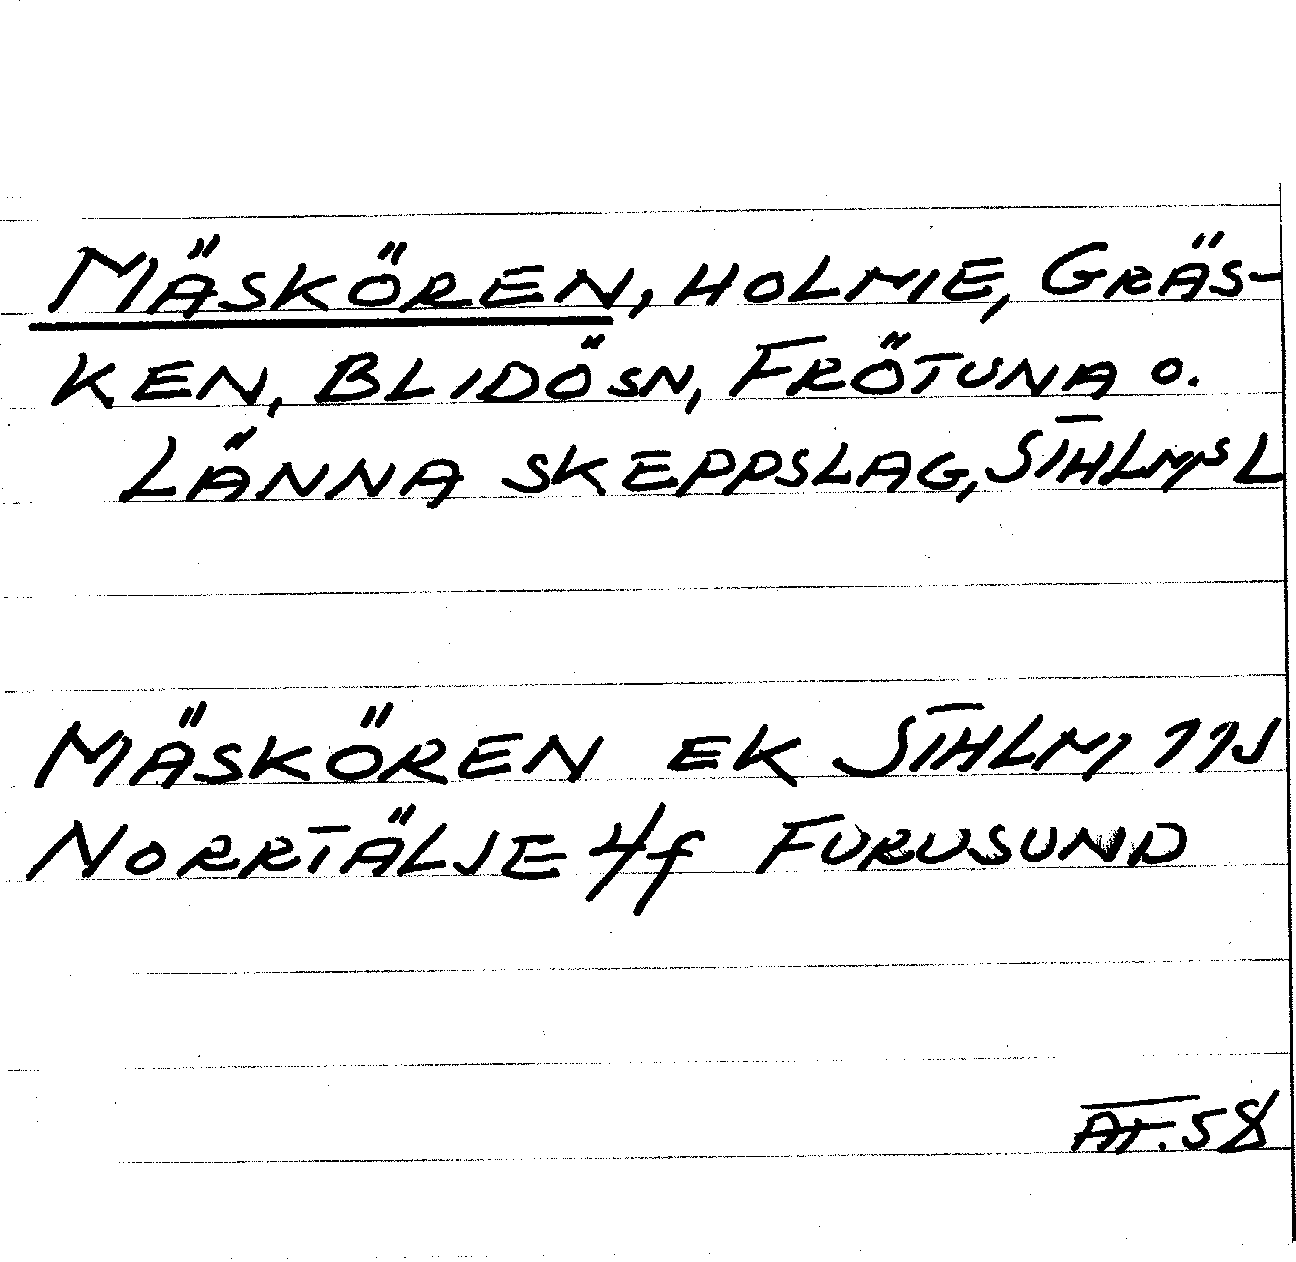 MÄSKÖREN, HOLME, GRÄS-
KEN, BLIDÖSN, FRÖTUNA O.
LÄNNA SKEPPSLAG, STHLMS L
MÄSKÖREN EK STHLM 11J
NORRTÄLJE 4f FURUSUND
AT. 58